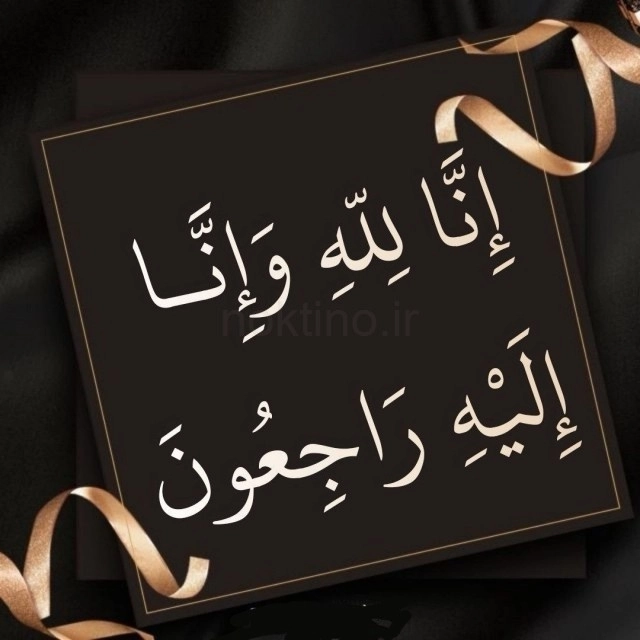 إِنَّا لِلَّٰهِ وَإِنَّـا
إِلَيْهِ رَاجِعُونَ
noktino.ir